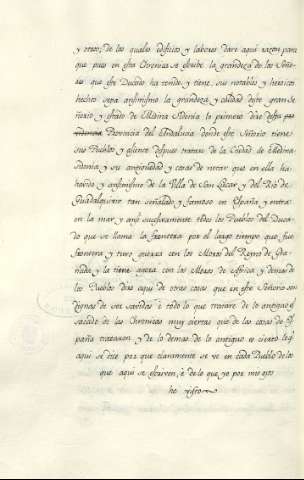 y otros; de los quales idificios y labores dare aqui raçon para
que pues en esta Chronica se escribe la grandeza de los Seño-
rios que este Ducado ha tenido y tiene, sus notables y heroicos
hechos sepa asimismo la grandeza y calidad deste gran Se-
ñorio y estado de Medina Sidonia lo primero dire desta pro
Provincia del Andalucia donde este Señorio tiene
sus Pueblos y asiento despues tratare de la Ciudad de Medina
Sidonia y su antiguedad y cosas de notar que en ella hai
havido y asimismo de la Villa de San Lucar y del Rio de
Guadalquivir tan señalado y famoso en España y entra
en la mar y asi sucesivamente todos los Pueblos del Duca-
do que se llama la frontera por el largo tiempo que fue
frontera y tuvo guerra con los Moros del Reyno de Gra-
nada y la tiene agora con los Moros de Africa y demas de
los Pueblos dire aqui de otras cosas que en este Señorio son
dignas de ser savidas è todo lo que tratare de lo antiguo es
sacado de las Chronicas muy ciertas que de las cosas de Es-
paña trataron, y de lo demas de lo antiguo es cierto lo q̃
aqui se dice por que claramente se ve en cada Pueblo de los
que aqui se escriven, è de lo que yo por mis ojos
he visto